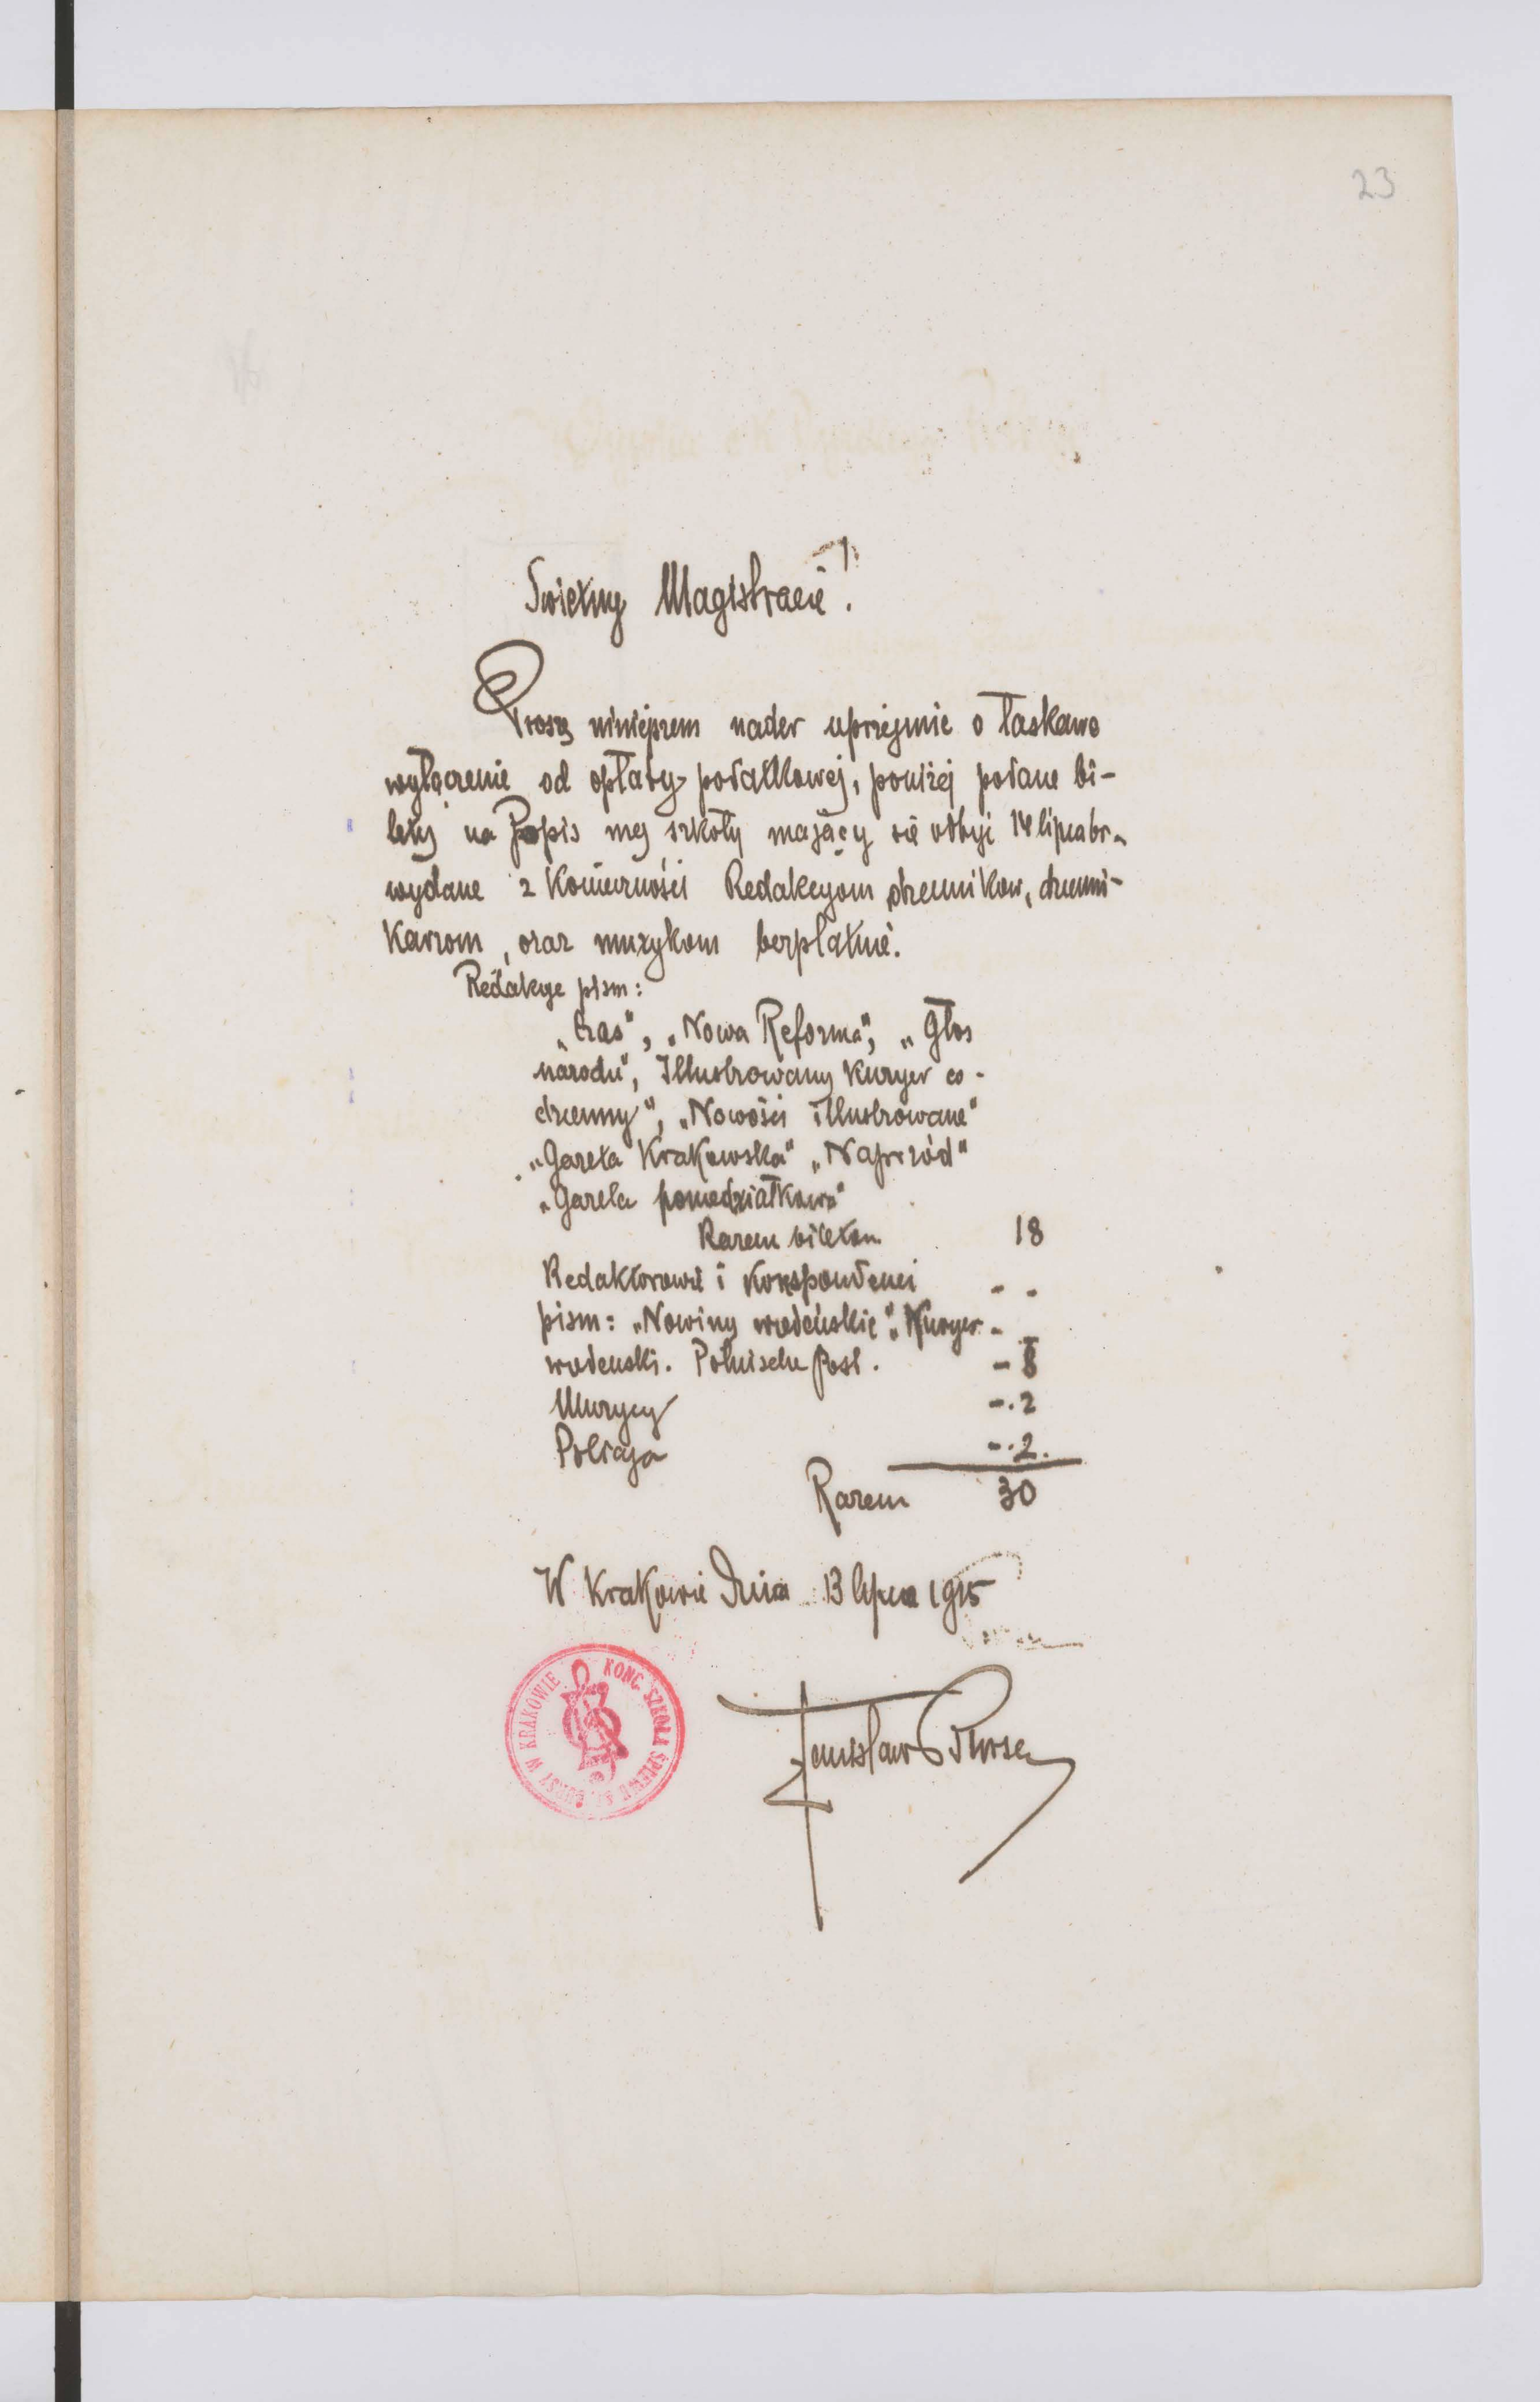 23
Swietny Magistracie!
Proszę niniejszem nader uprzejmie o łaskawe
wyłączenie od opłaty podatkowej, poniżej podane bi-
lety na Popis mej szkoły mający się odbyć 14 lipca br.
wydane z konieczności Redakcyom dzienników, dzienni-
karzom, oraz muzykom bezpłatnie.
Redakcye pism:
„Czas", „Nowa Reforma", „Głos
narodu", Illustrowany Kuryer co-
dzienny", „Nowości illustrowane"
„Gazeta Krakowska" „Naprzód"
„Gazeta poniedziałkowa"
Razem biletów 18
Redaktorowie i korespondenci - -
pism: „Nowiny wiedeńskie", „Kuryer -
wiedenski. Polnische Post. - 8
Muzycy - . 2
Policja - . 2.
Razem 30
W Krakowie dnia 13 lipca 1915
KONC. SZKOŁA ŚPIEWU ST. BURSY W KRAKOWIE
Stanisław Bursa